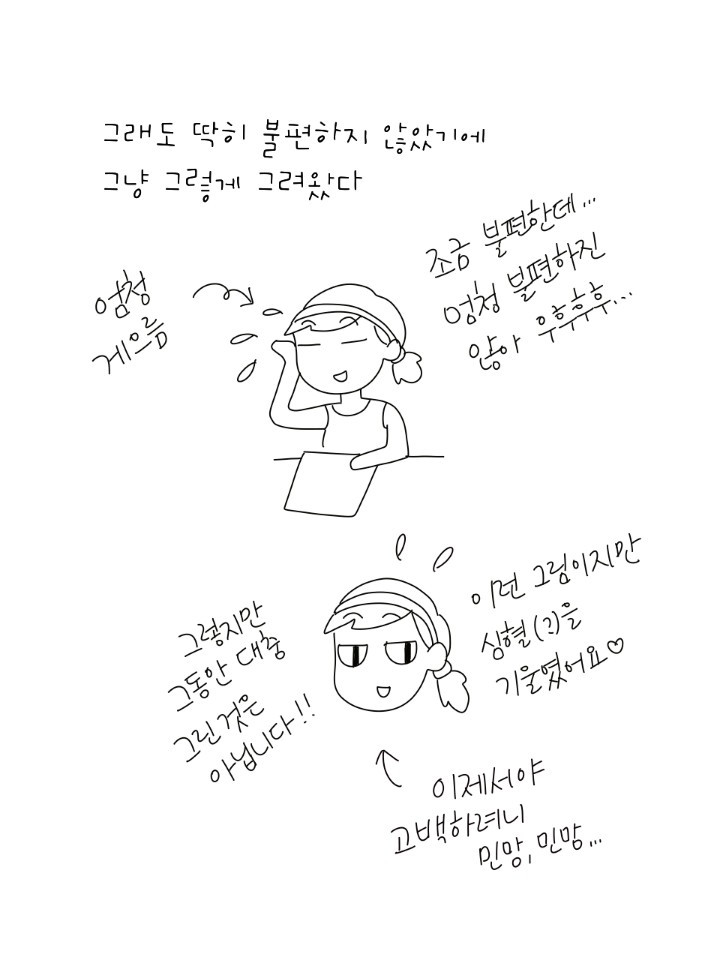 그래도 딱히 불편하지 않았기에
그냥 그렇게 그려왔다
엄청
게으름
조금 불편한데...
엄청 불편하진
않아 우후후후...
그렇지만
그동안 대충
그린것은
아닙니다!!
이런 그림이지만
심혈(?)을
기울였어요♡
이제서야
고백하려니
민망, 민망...